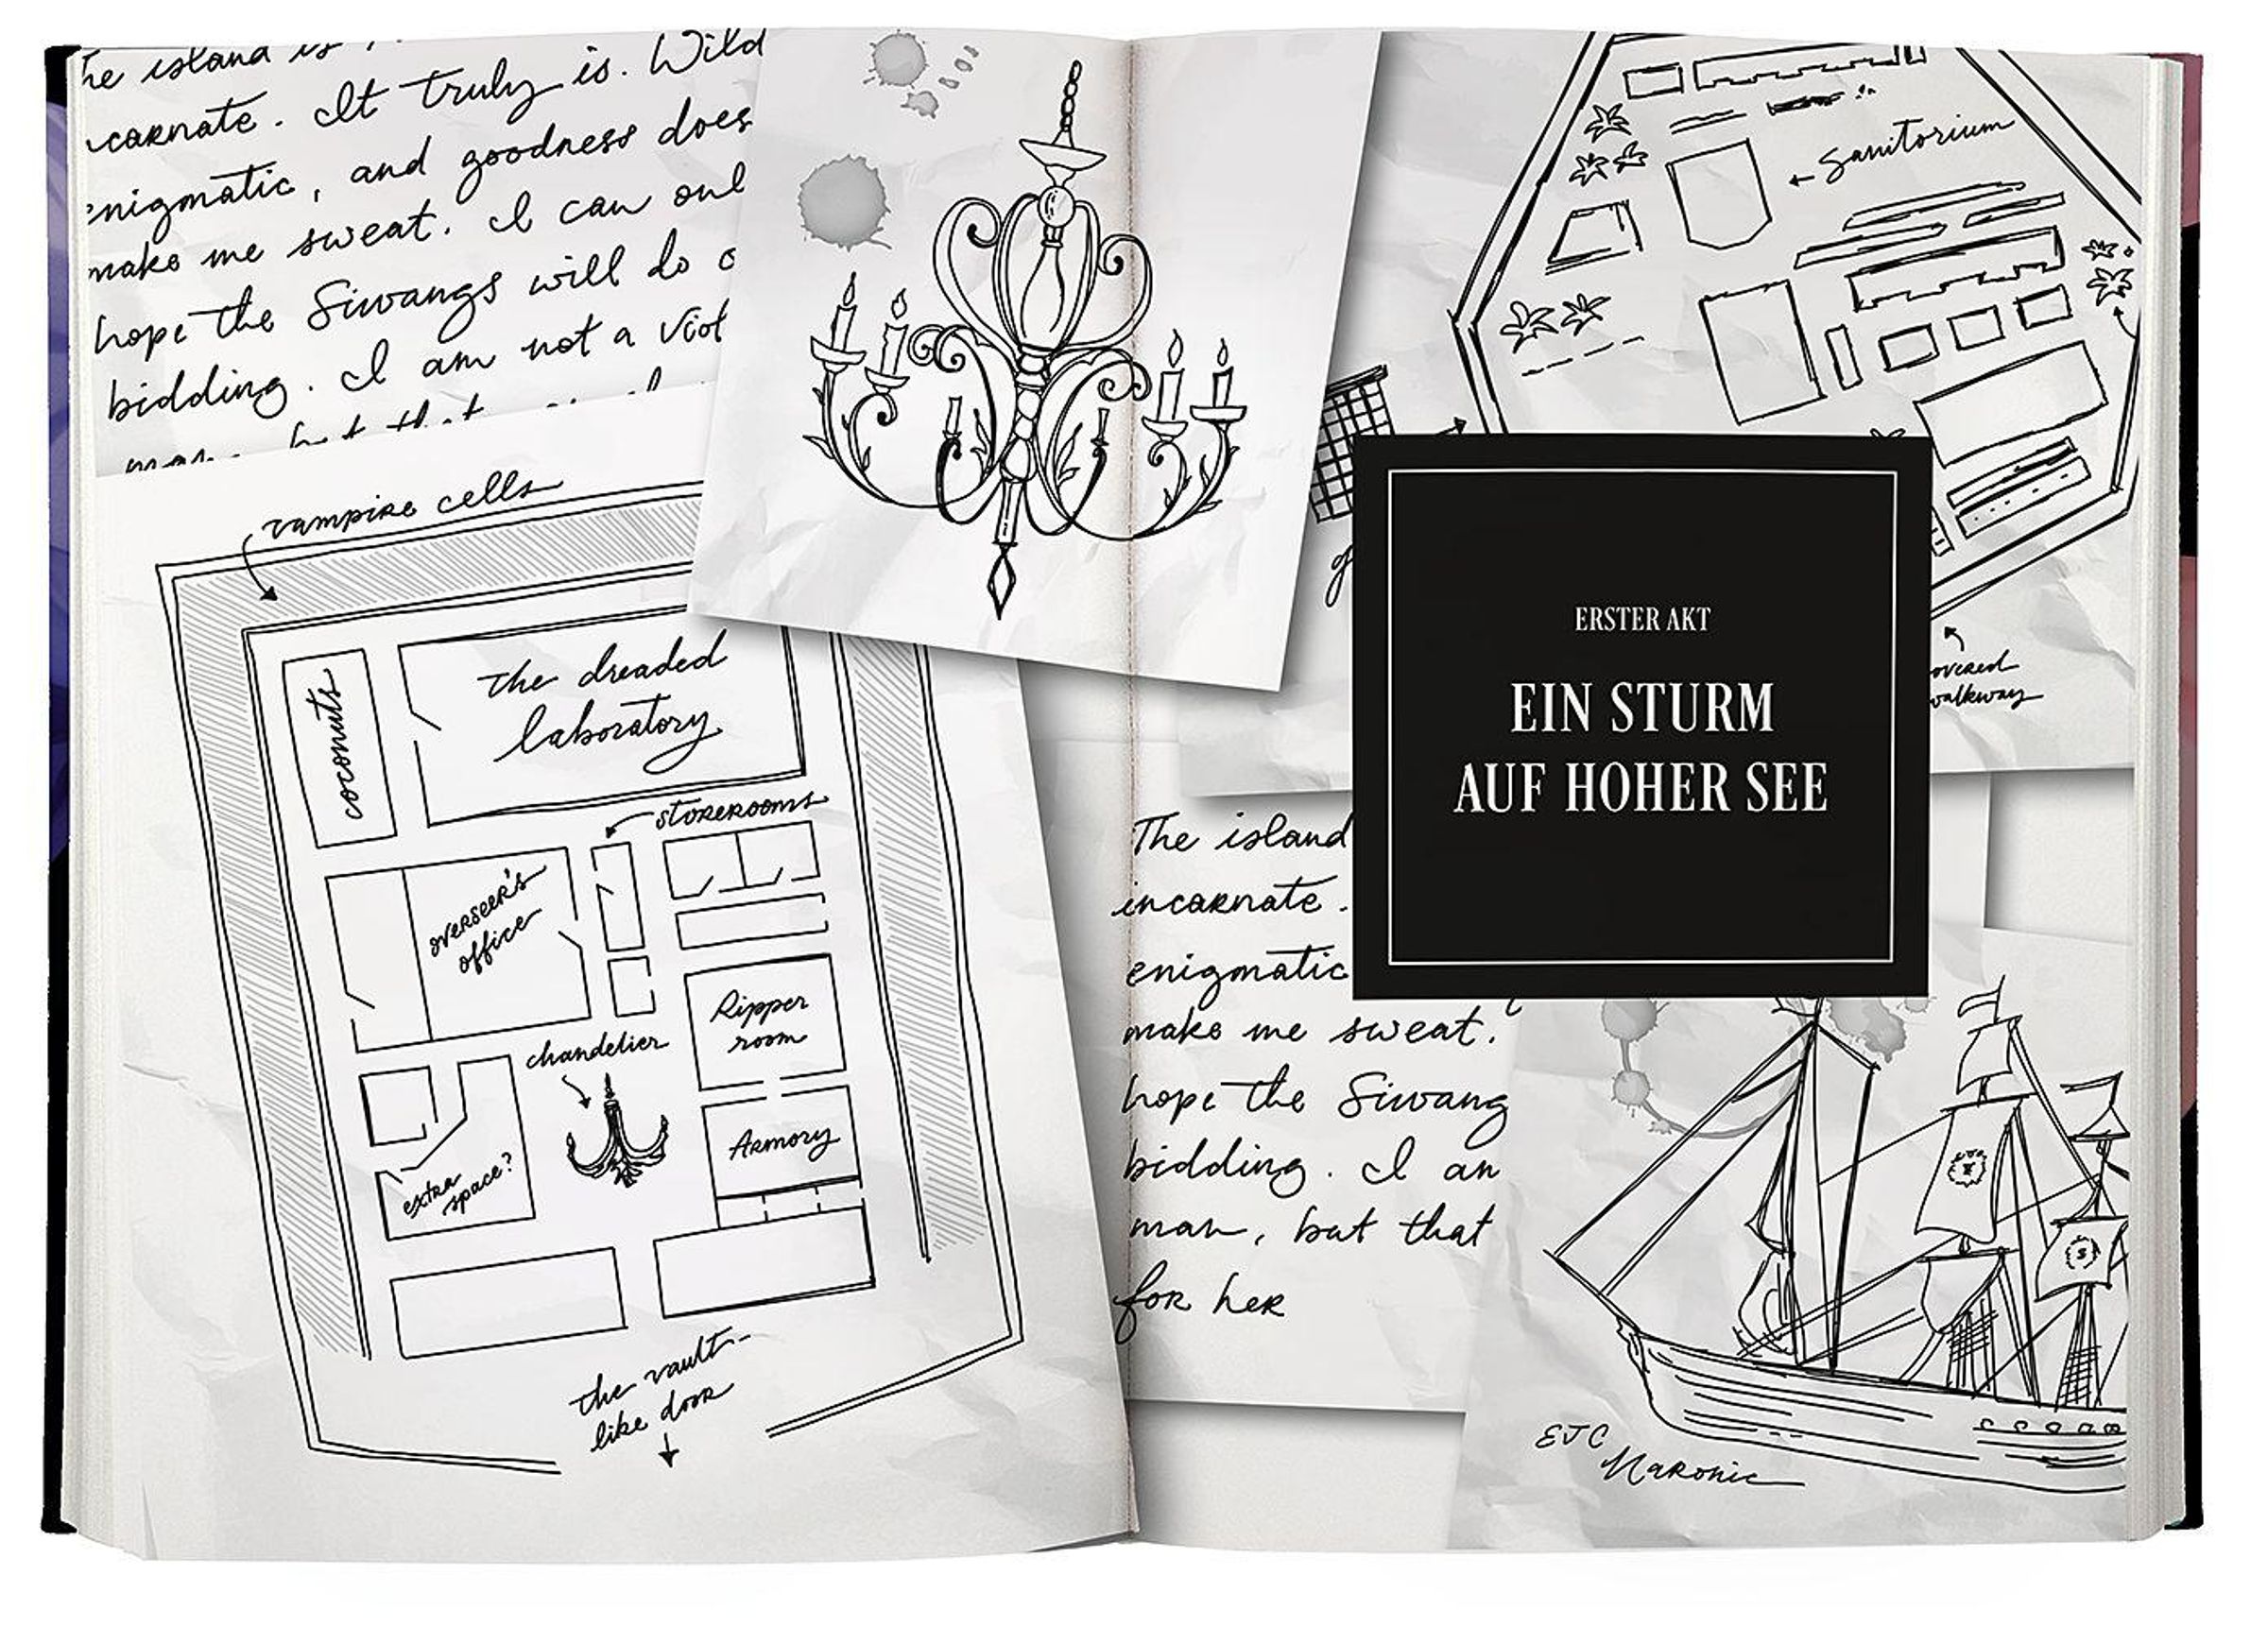 The island is
ncarnate. It truly is. Wild
enigmatic, and goodness does
make me sweat. I can onl
hope the Siwangs will do o
bidding. I am not a viol
vampire cells
coconuts
the dreaded
laboratory
storerooms
overseer's
office
Ripper
room
chandelier
Armory
extra
space?
the vault-
like door
sanitorium
g
overed
walkway
ERSTER AKT
EIN STURM
AUF HOHER SEE
The island
incarnate.
enigmatic
make me sweat.
hope the Siwang
bidding. I am
man, but that
for her
EJC